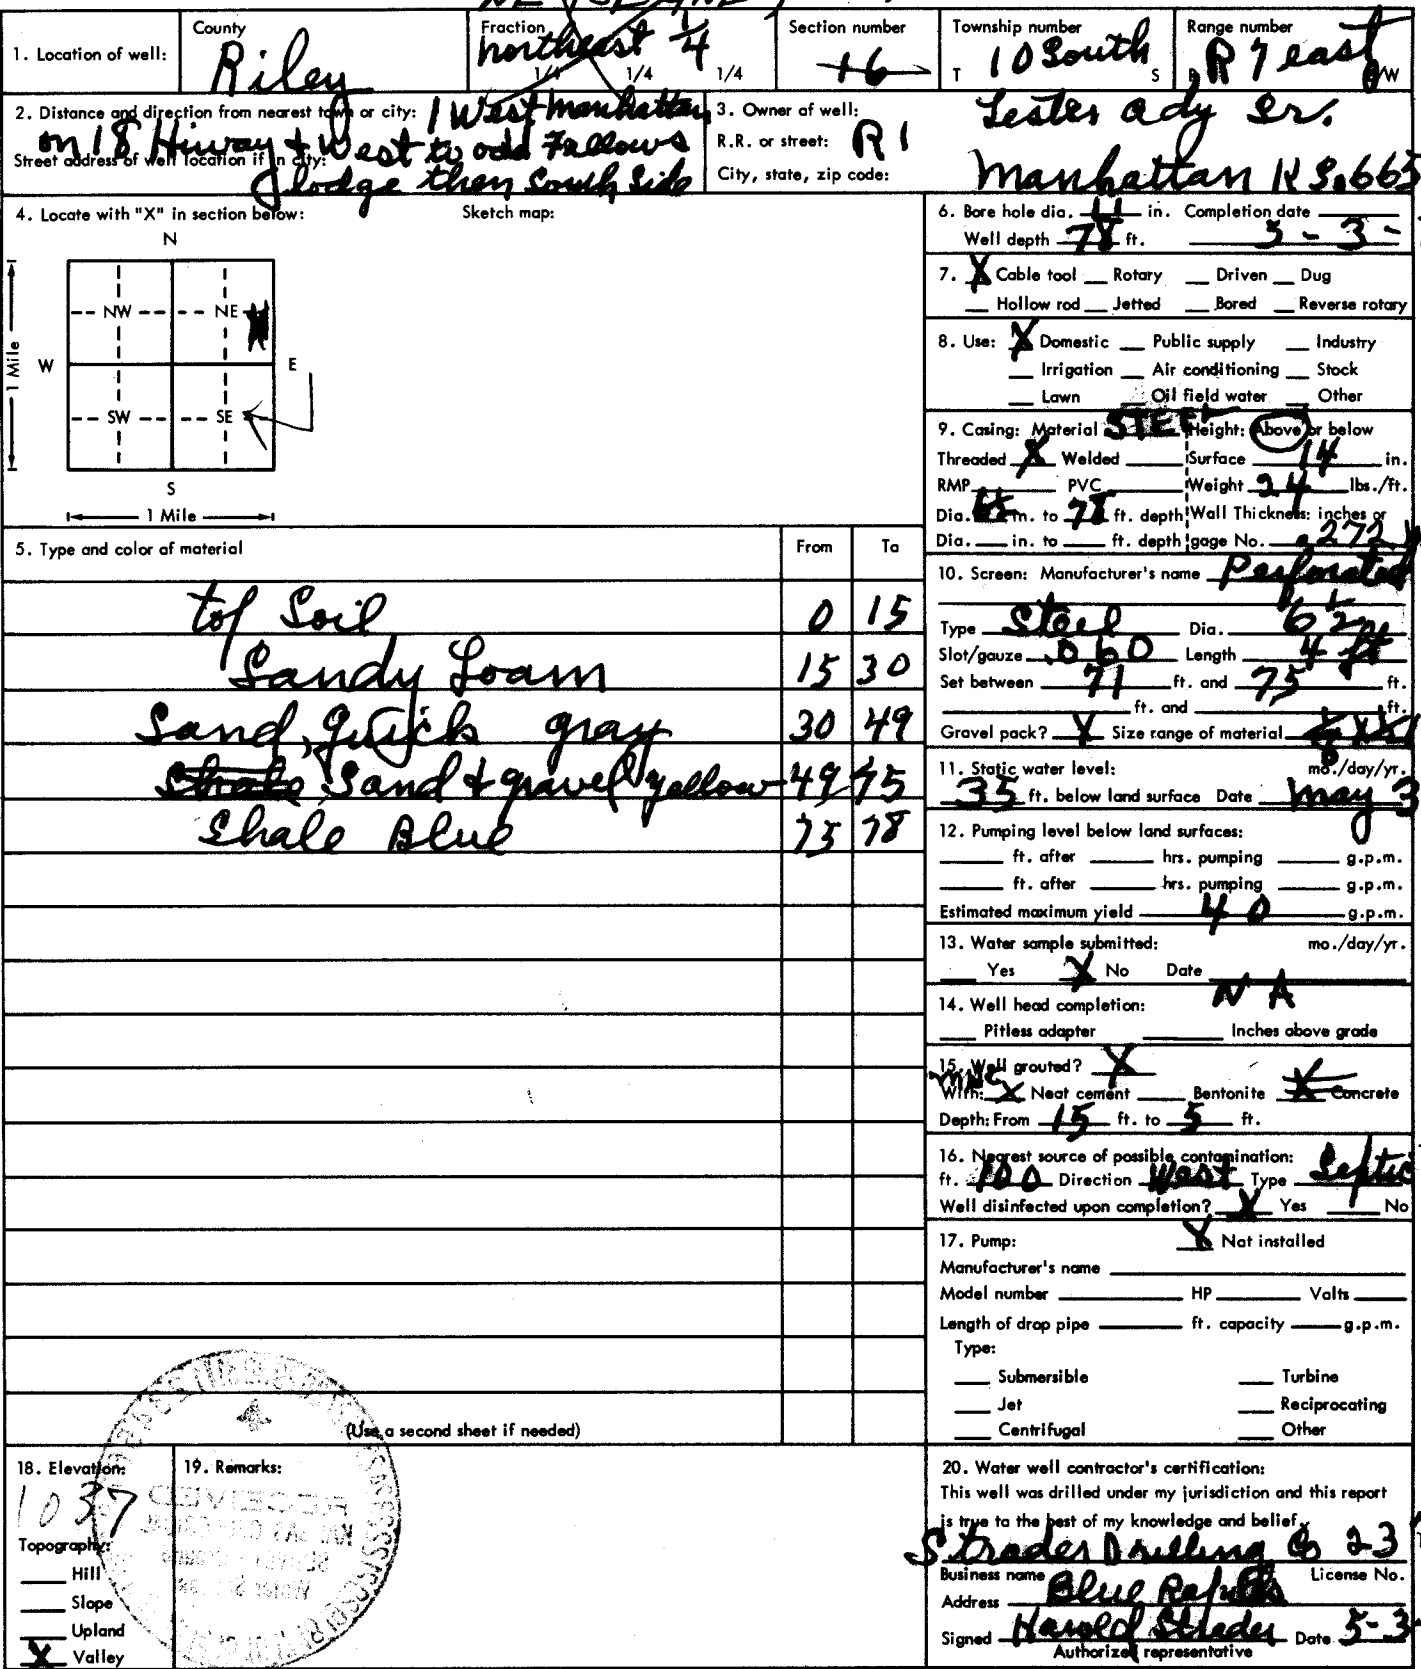 County
Riley
Fraction
northeast 1/4
1/4 1/4 1/4
Section number
16
Township number
T 10 South S
Range number
R 7 east E/W
1. Location of well:
2. Distance and direction from nearest town or city: 1 West manhattan
on 18 Hiway & West to odd Fallows
Street address of well location if in city:
lodge then South Side
3. Owner of well: Lester Ady Sr.
R.R. or street: R 1
City, state, zip code: Manhattan KS. 665
4. Locate with "X" in section below:
Sketch map:
N
NW NE
W E
SW SE
S
1 Mile
1 Mile
5. Type and color of material From To
top Soil 0 15
Sandy Loam 15 30
Sand, quick gray 30 49
Shale Sand & gravel yellow 49 75
Shale Blue 75 78
(Use a second sheet if needed)
6. Bore hole dia. 11 in. Completion date
Well depth 78 ft. 5-3-
7. X Cable tool Rotary Driven Dug
Hollow rod Jetted Bored Reverse rotary
8. Use: X Domestic Public supply Industry
Irrigation Air conditioning Stock
Lawn Oil field water Other
9. Casing: Material STEEL Height: Above or below
Threaded X Welded Surface 14 in.
RMP PVC Weight 24 lbs./ft.
Dia. in. to 78 ft. depth Wall Thickness: inches or
Dia. in. to ft. depth gage No. .272
10. Screen: Manufacturer's name Perforated
Type Steel Dia.
Slot/gauze .060 Length 4 ft
Set between 71 ft. and 75 ft.
ft. and ft.
Gravel pack? X Size range of material
11. Static water level: mo./day/yr.
35 ft. below land surface Date May 3
12. Pumping level below land surfaces:
ft. after hrs. pumping g.p.m.
ft. after hrs. pumping g.p.m.
Estimated maximum yield 40 g.p.m.
13. Water sample submitted: mo./day/yr.
Yes X No Date
14. Well head completion: N A
Pitless adapter Inches above grade
15. Well grouted? X
With: X Neat cement Bentonite X Concrete
Depth: From 15 ft. to 5 ft.
16. Nearest source of possible contamination:
ft. 100 Direction West Type Septic
Well disinfected upon completion? X Yes No
17. Pump: X Not installed
Manufacturer's name
Model number HP Volts
Length of drop pipe ft. capacity g.p.m.
Type:
Submersible Turbine
Jet Reciprocating
Centrifugal Other
18. Elevation:
1037
Topography:
Hill
Slope
Upland
X Valley
19. Remarks:
RECEIVED
20. Water well contractor's certification:
This well was drilled under my jurisdiction and this report
is true to the best of my knowledge and belief.
Strader Drilling Co 23
Business name License No.
Address Blue Rapids
Signed Harold Strader Date 5-3-
Authorized representative